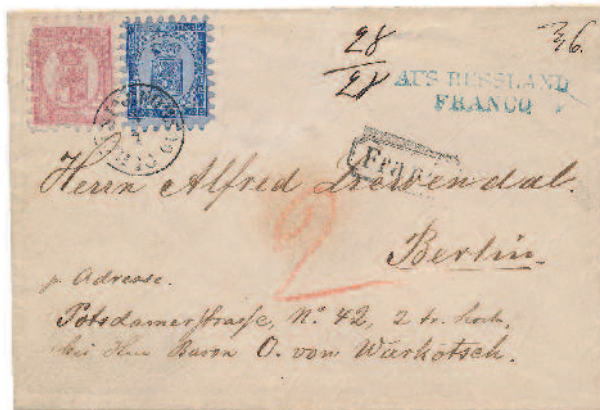 28
36.
21
AUS RUSSLAND
FRANCO
Franco
Herrn Alfred Loewendal.
Berlin.
2
p. Adresse.
Potsdamerstraße, No. 42, 2 tr. hoch,
bei Herrn Baron O. von Warkotsch.